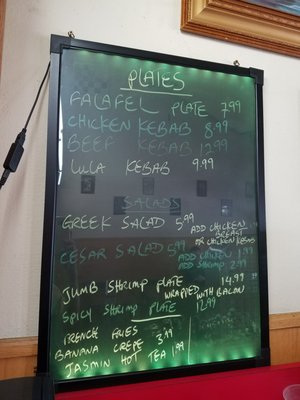 PLATES
FALAFEL PLATE 7.99
CHICKEN KEBAB 8.99
BEEF KEBAB 12.99
LULA KEBAB 9.99
SALADS
GREEK SALAD 5.99 ADD CHICKEN
BREAST
OR CHICKEN KEBAB
CESAR SALAD 5.99 ADD CHICKEN 1.99
ADD SHRIMP 2.99
JUMB SHRIMP PLATE 14.99
WRAPPED WITH BACON
SPICY SHRIMP PLATE 12.99
FRENCH FRIES
BANANA CREPE 3.99
JASMIN HOT TEA 1.99